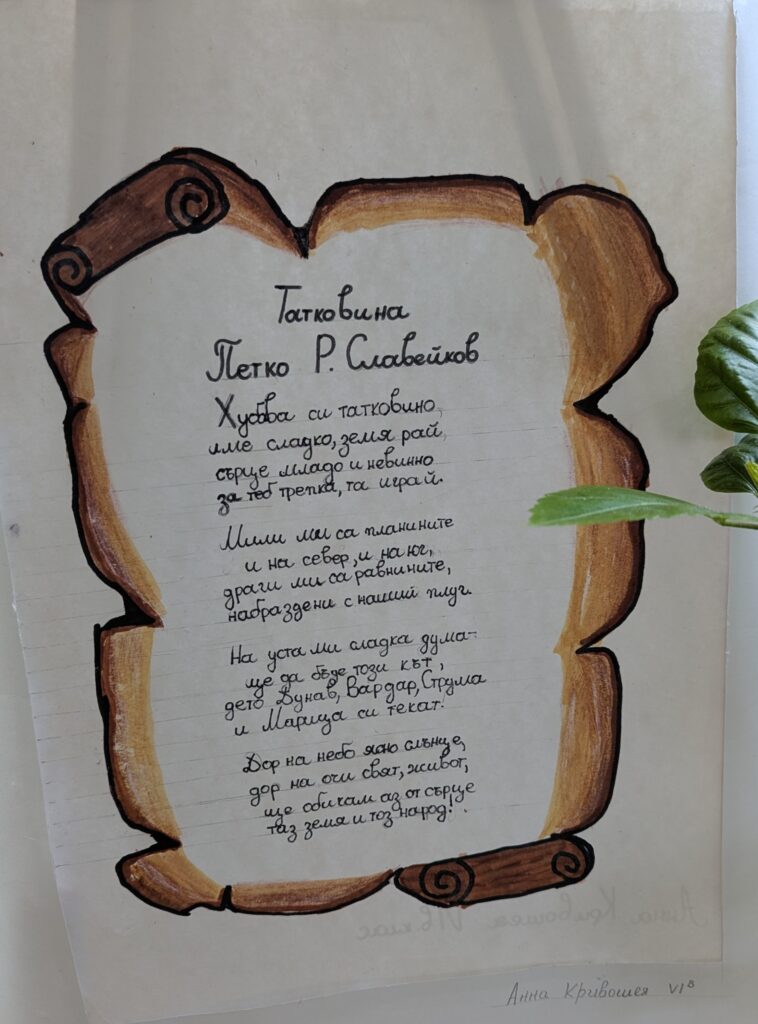 Татковина
Петко Р. Славейков
Хубава си татковино,
име сладко, земя рай,
сърце младо и невинно
за теб трепка, та играй.
Мили ми са планините
и на север, и на юг,
драги ми са равнините,
набраздени с наший плуг.
На уста ми сладка дума-
ще да бъде този кът,
дето Дунав, Вардар, Струма
и Марица си текат!
Дор на небо ясно слънце,
дор на очи свят, живот,
ще обичам аз от сърце
таз земя и тоз народ!
Анна Кривошея VI клас
Анна Кривошея VIв